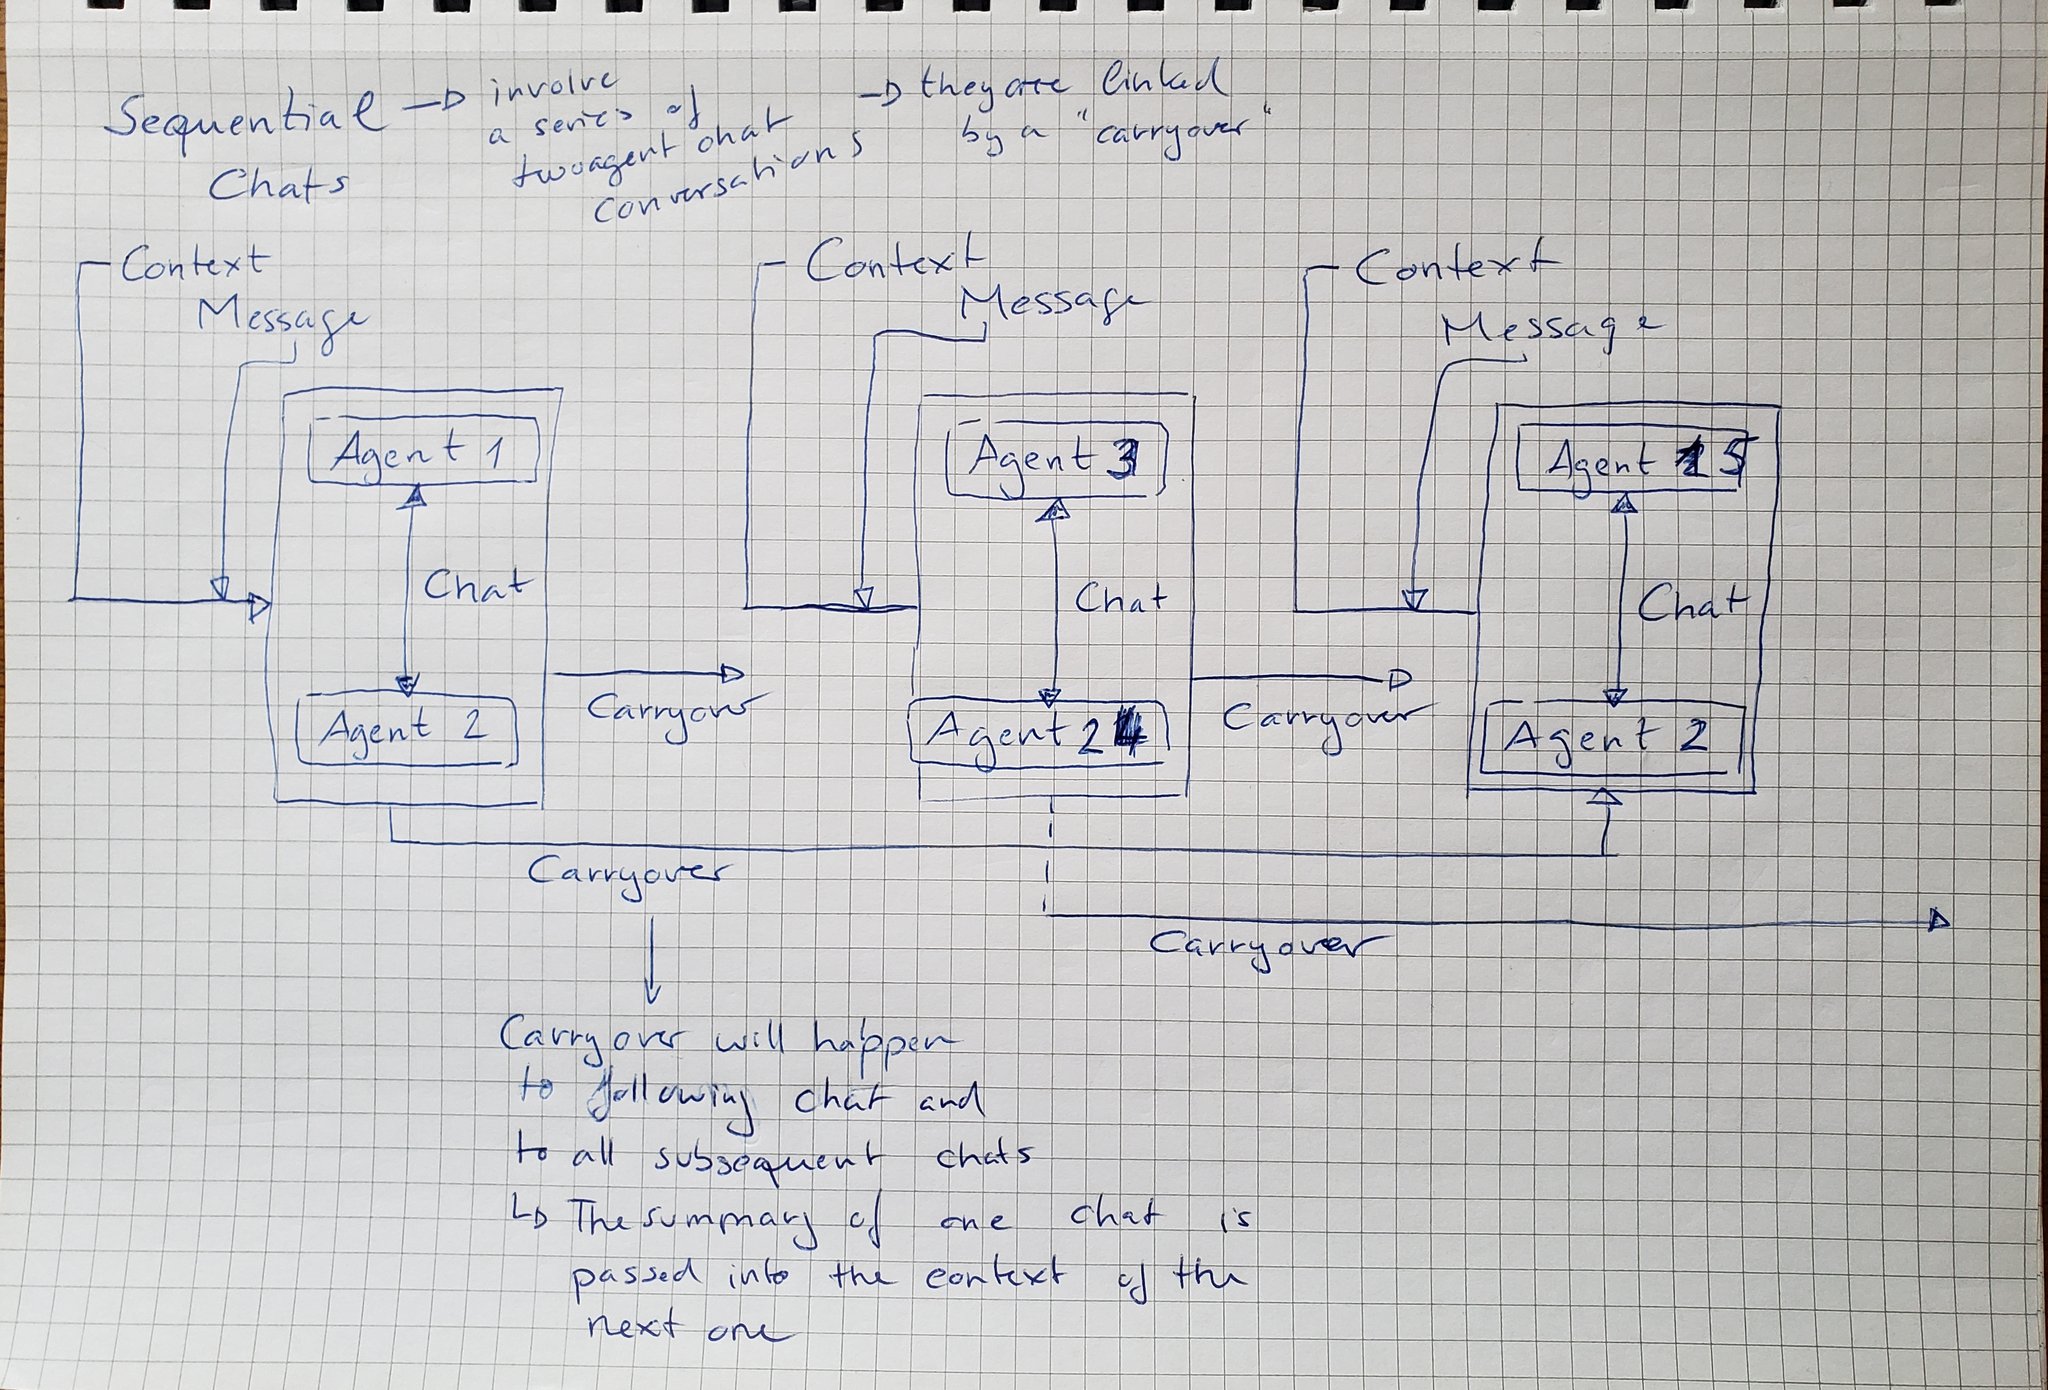 Sequential
Chats
→ involve
a series of
twoagent chat
conversations
→ they are linked
by a "carryover"
Context
Message
Context
Message
Context
Message
Agent 1
Chat
Agent 2
Carryover
Agent 3
Chat
Agent 2
Carryover
Agent 5
Chat
Agent 2
Carryover
Carryover
Carryover will happen
to following chat and
to all subsequent chats
↳ The summary of one chat is
passed into the context of the
next one